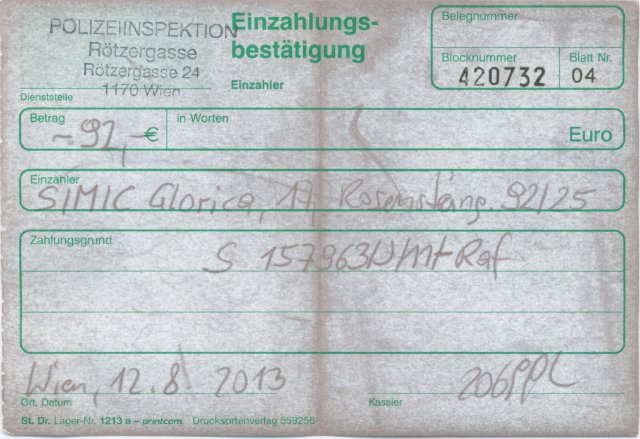 POLIZEIINSPEKTION
Rötzergasse
Rötzergasse 24
1170 Wien
Dienststelle
Einzahlungs-
bestätigung
Einzahler
Belegnummer
Blocknummer
420732
Blatt Nr.
04
Betrag
-92,-€
in Worten
Euro
Einzahler
SIMIC Glorica, 17, 92/25
Zahlungsgrund
S 157963
Wien, 12.8. 2013
Ort, Datum
Kassier
St. Dr. Lager-Nr. 1213 a – printcom Drucksortenverlag 559256